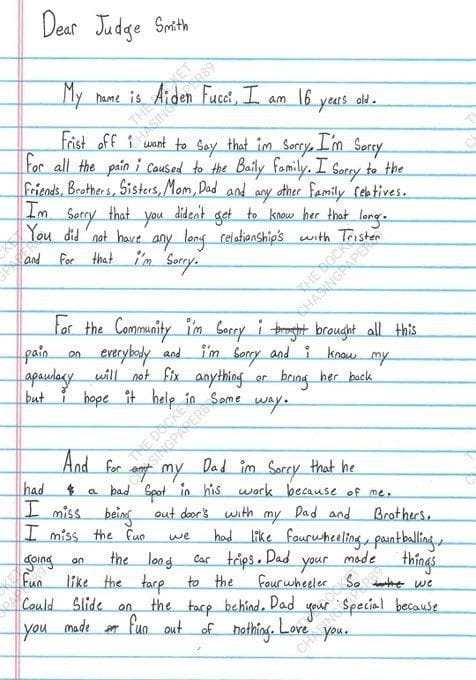 Dear Judge Smith
My name is Aiden Fucci, I am 16 years old.
Frist off i want to say that im sorry. I'm Sorry
for all the pain i caused to the Baily family. I Sorry to the
friends, Brothers, Sisters, Mom, Dad and any other family reletives.
I'm Sorry that you diden't get to know her that long.
You did not have any long relationship's with Tristen
and for that i'm Sorry.
For the Community i'm Sorry i broght brought all this
pain on everybody and i'm Sorry and i know my
apaulagy will not fix anything or bring her back
but i hope it help in Some way.
And for my Dad im Sorry that he
had a bad Spot in his work because of me.
I miss being out door's with my Dad and Brothers.
I miss the fun we had like fourwheeling, paintballing,
going on the long car trips. Dad your made things
fun like the tarp to the fourwheeler So we
Could Slide on the tarp behind. Dad your Special because
you made fun out of nothing. Love you.
THE DOCKET
CHASINGPAPER89